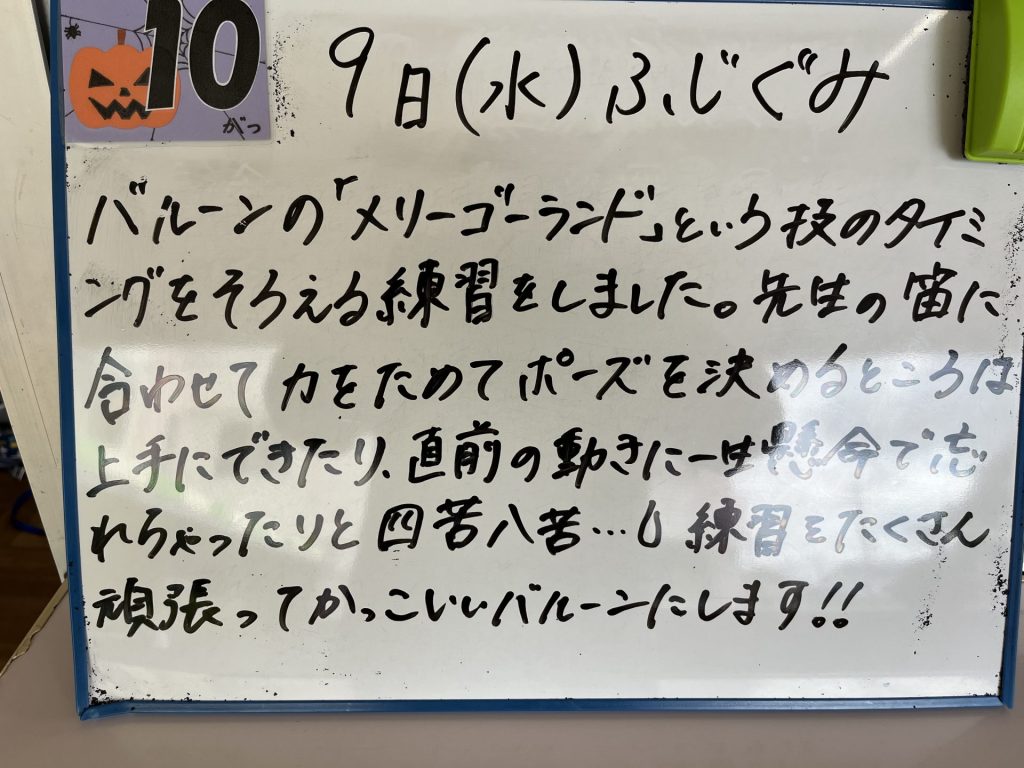 10
がつ
9日(水)ふじぐみ
バルーンの「メリーゴーランド」という技のタイミ
ングをそろえる練習をしました。先生の笛に
合わせて力をためてポーズを決めるところは
上手にできたり、直前の動きに一生懸命で忘
れちゃったりと四苦八苦…し練習をたくさん
頑張ってかっこいいバルーンにします!!